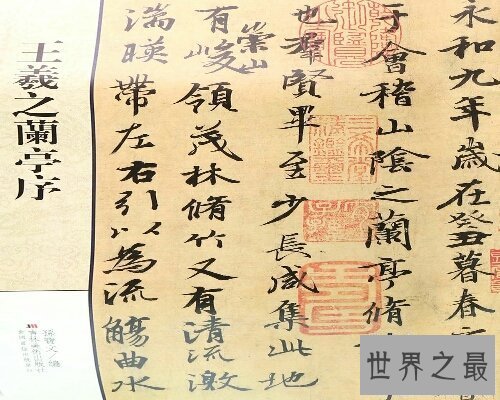 永和九年歲在癸丑暮春
于會稽山陰之蘭亭脩
也群賢畢至少長咸集此地
有崇山峻領茂林脩竹又有清流激
湍暎帶左右引以為流觴曲水
王羲之蘭亭序
世界之最